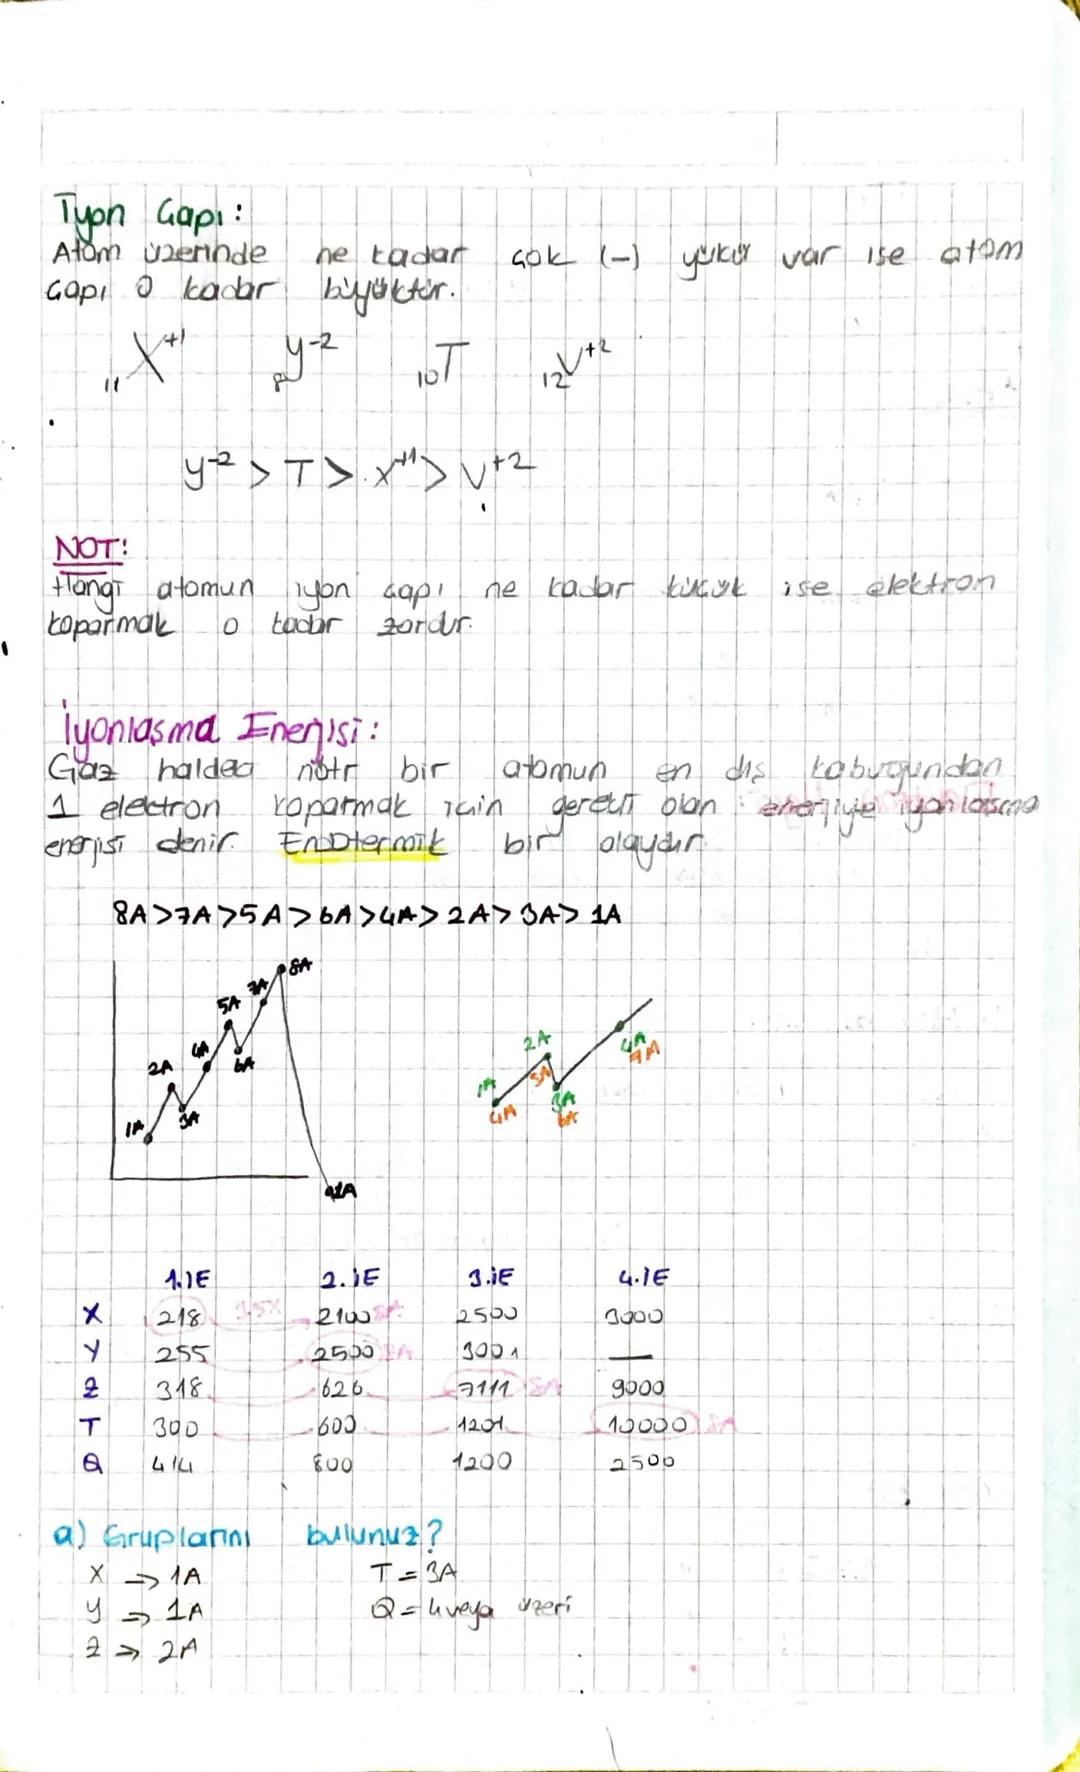 İyon Çapı:
Atom üzerinde ne kadar çok (-) yükü var ise atom
çapı o kadar büyüktür.
₁₁X⁺¹ ₈y⁻² ₁₀T ₁₂V⁺²
y⁻² > T > x⁺¹ > V⁺²
NOT:
Hangi atomun iyon çapı ne kadar küçük ise elektron
koparmak o kadar zordur.
İyonlaşma Enerjisi:
Gaz haldeo nötr bir atomun en dış kabuğundan
1 elektron koparmak için gerekli olan enerjiye iyonlaşma
enerjisi denir. EnDOtermik bir olaydır.
8A>7A>5A>6A>4A>2A>3A>1A
8A
7A
5A
4A
6A
2A
3A
1A
1A
2A
5A
4A
7A
1A
4A
3A
6A
1.İE 2.İE 3.İE 4.İE
X 218 3,5x 2100 8A 2500 3000
Y 255 2500 8A 3001 —
Z 318 626 7111 8A 9000
T 300 600 1201 10000 8A
Q 414 800 1200 2500
a) Gruplarını bulunuz?
X ⇒ 1A T = 3A
y ⇒ 1A Q = 4 veya üzeri
Z ⇒ 2A